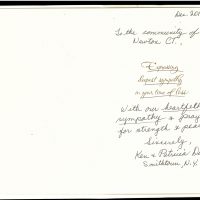 Dec. 201
To the community of
Newton CT.,
Expressing
deepest sympathy
in your time of loss
With our heartfelt
sympathy & pray
for strength & pea
Sincerely,
Ken & Patricia D
Smithtown, N.Y.